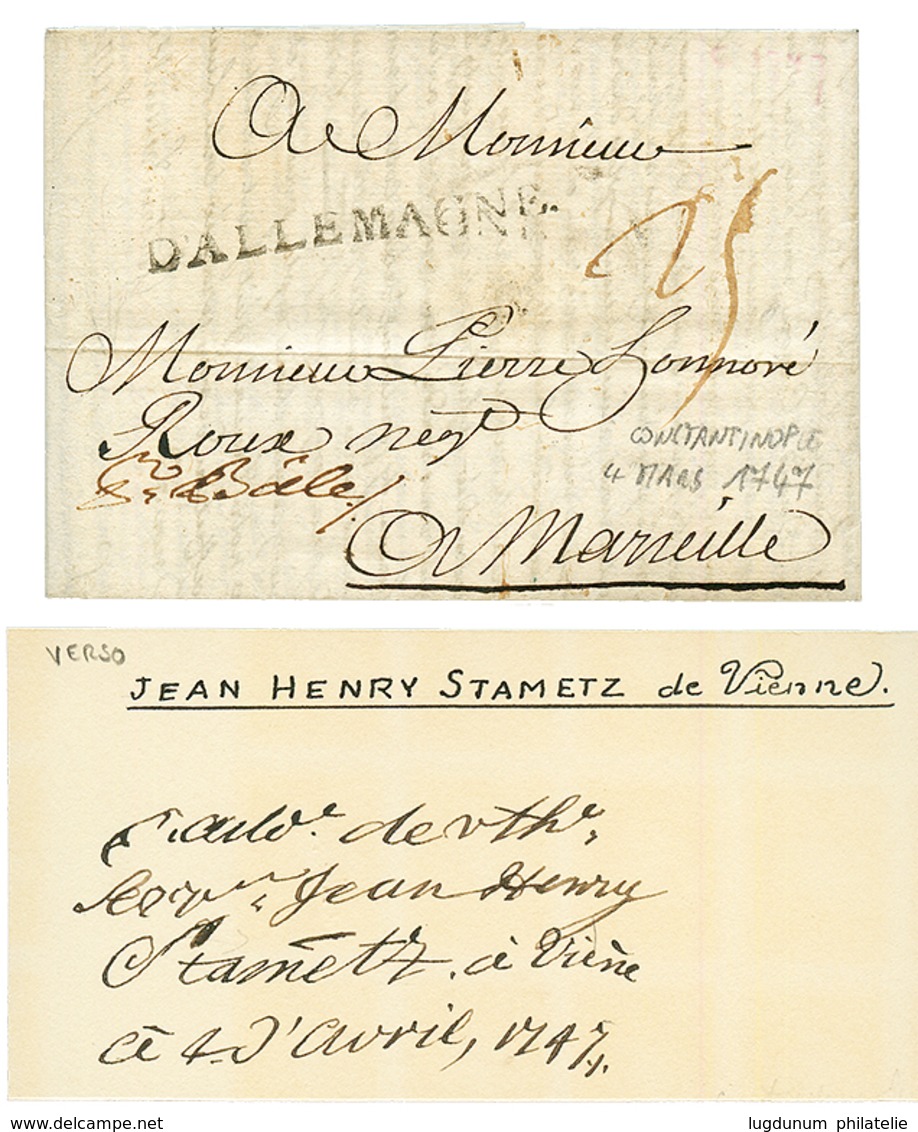 A Monsieur
D'ALLEMAGNE.
25
Monsieur Pierre Honnoré
Roux negt
Bâle
CONSTANTINOPLE
4 MARS 1747
A Marseille
VERSO
JEAN HENRY STAMETZ de Vienne.
Jean Henry
Stametz. à Viene
Ce 4 d'avril, 1747
delcampe.net
lugdunum philatelie